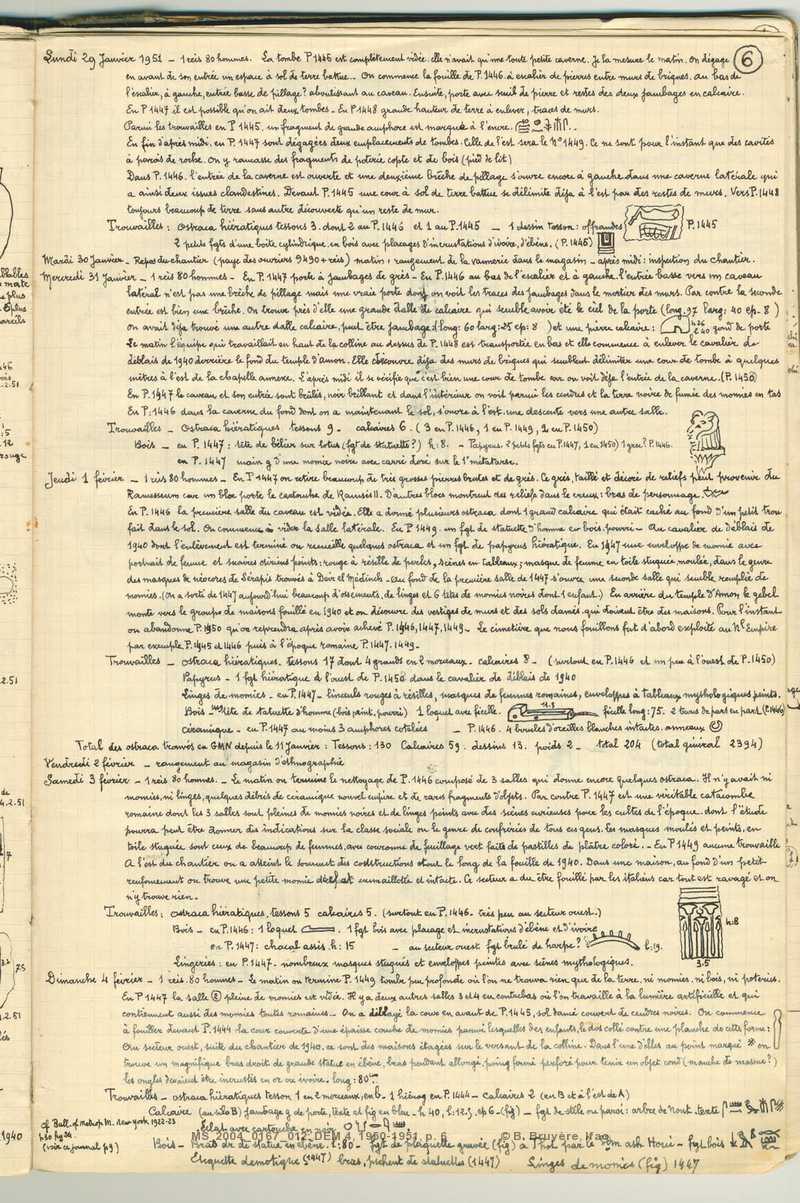 6
Lundi 29 Janvier 1951 – 1 reis 80 hommes. La tombe P.1445 est complètement vidée. elle n'avait qu'une toute petite caverne. Je la mesure le matin. On dégage
en avant de son entrée un espace à sol de terre battue... On commence la fouille de P.1446. à escalier de pierres entre murs de briques. au bas de
l'escalier, à gauche, entrée basse de pillage? aboutissant au caveau. Ensuite, porte avec seuil de pierre et restes des deux jambages en calcaire.
En P 1447 il est possible qu'on ait deux tombes – En P 1448 grande hauteur de terre à enlever, traces de murs.
Parmi les trouvailles en P 1445. un fragment de grande amphore est marqué à l'encre.
En fin d'après midi. en P.1447 sont dégagées deux emplacements de tombes. Celle de l'est sera le N° 1449. Ce ne sont pour l'instant que des cavités
à parois de roche. On y ramasse des fragments de poterie copte et de bois (pied de lit)
Dans P.1446. l'entrée de la caverne est ouverte et une deuxième brèche de pillage s'ouvre encore à gauche dans une caverne latérale qui
a ainsi deux issues clandestines. Devant P.1445 une cour à sol de terre battue se délimite déjà à l'est par des restes de murs. Vers P.1448
toujours beaucoup de terre sans autre découverte qu'un reste de mur.
Trouvailles: ostraca hiératiques tessons 3. dont 2 au P.1446 et 1 au P.1445 – 1 dessin tesson: offrandes P.1445
2 petits fgts d'une boite cylindrique. en bois avec placages d'incrustations d'ivoire, d'ébène. (P.1445)
Mardi 30 Janvier – Repos du chantier (paye des ouvriers 9430 + reis) matin: rangement de la vannerie dans le magasin – après midi: inspection du chantier.
Mercredi 31 Janvier – 1 reis 80 hommes – En P.1447 porte à jambages de grès – En P.1446 au bas de l'escalier et à gauche l'entrée basse vers un caveau
latéral n'est pas une brèche de pillage mais une vraie porte dont on voit les traces des jambages dans le mortier des murs. Par contre la seconde
entrée est bien une brèche. On trouve près d'elle une grande dalle de calcaire qui semble avoir été le ciel de la porte (long. 97 larg: 40 ep. 8)
On avait déjà trouvé une autre dalle calcaire, peut être jambage (long: 60 larg: 25 ep: 8) et une pierre calcaire: gond de porte
Le matin l'équipe qui travaillait en haut de la colline au dessus de P.1448 est transportée en bas et elle commence à enlever le cavalier de
déblais de 1940 derrière le fond du temple d'amon. Elle découvre déjà des murs de briques qui semblent délimiter une cour de tombe à quelques
mètres à l'est de la chapelle annexe. L'après midi il se vérifie que c'est bien une cour de tombe car on voit déjà l'entrée de la caverne. (P.1450)
En P.1447 le caveau et son entrée sont brûlés, noir brillant et dans l'intérieur on voit parmi les cendres et la terre noire de fumée des momies en tas
En P.1446 dans la caverne du fond dont on a maintenant le sol, s'ouvre à l'est une descente vers une autre salle.
Trouvailles – Ostraca hiératiques tessons 9 – calcaires 6. (3 en P.1446, 1 en P.1449, 2 en P.1450)
Bois – en P.1447: tête de bélier sur lotus (fgt de statuette?) h: 8. – Papyrus. 2 petits fgts en P.1447, 1 en 1450) 1 grec? P.1446.
en P.1447 main g d'une momie noire avec carré doré sur le 1er métatarse.
Jeudi 1 février – 1 reis 80 hommes – En P 1447 on retire beaucoup de très grosses pierres brutes et de grès. Ce grès, taillé et décoré de reliefs peut provenir du
Ramesseum car un bloc porte le cartouche de Ramsès II. D'autres blocs montrent des reliefs dans le creux: bras de personnage.
En P.1446 la première salle du caveau est vidée. Elle a donné plusieurs ostraca, dont 1 grand calcaire qui était caché au fond d'un petit trou
fait dans le sol. On commence à vider la salle latérale. En P 1449. un fgt de statuette d'homme en bois pourri – Au cavalier de déblais de
1940 dont l'enlèvement est terminé on recueille quelques ostraca et un fgt de papyrus hiératique. En 1947 une enveloppe de momie avec
portrait de femme et suaires osiriens peints: rouge à résille de perles, scènes en tableaux; masque de femme en toile stuquée moulée, dans le genre
des masques de nécores de Sérapis trouvés à Deir el Médineh – Au fond de la première salle de 1447 s'ouvre une seconde salle qui semble remplie de
momies. (On a sorti de 1447 aujourd'hui beaucoup d'ossements, de linges et 6 têtes de momies noires dont 1 enfant.) En arrière du temple d'Amon, le gebel
monte vers le groupe de maisons fouillé en 1940 et on découvre des vestiges de murs et des sols damés. qui doivent être des maisons. Pour l'instant
on abandonne P.1450 qu'on reprendra, après avoir achevé P.1446, 1447, 1449 – Le cimetière que nous fouillons fut d'abord exploité au Nel Empire
par exemple P.1445 et 1446 puis à l'époque romaine P.1447. 1449 –
Trouvailles – ostraca hiératiques. tessons 17 dont 4 grands en 2 morceaux – calcaires 8 – (surtout en P.1446 et un peu à l'ouest de P.1450)
Papyrus – 1 fgt hiératique à l'ouest de P.1450 dans le cavalier de déblais de 1940
Linges de momies – en P.1447 – linceuls rouges à résilles, masques de femmes romaines, enveloppes à tableaux mythologiques peints.
Bois – 1449 tête de statuette d'homme (bois peint, pourri) 1 loquet avec ficelle. 11.5 ficelle long: 75. 2 trous de part en part (P.1446)
céramique – en P.1447 au moins 3 amphores cotelées – P.1446. 4 boucles d'oreilles blanches intactes. anneaux
Total des ostraca trouvés en GMN depuis le 11 Janvier: Tessons: 130 Calcaires 59. dessins 13. poids 2 – total 204 (total général 2394)
Vendredi 2 février – rangement au magasin d'ethnographie
Samedi 3 février – 1 reis 80 hommes – Le matin on termine le nettoyage de P.1446 composé de 3 salles qui donne encore quelques ostraca. Il n'y avait ni
momies, ni linges, quelques débris de céramique nouvel empire et de rares fragments d'objets. Par contre P.1447 est une véritable catacombe
romaine dont les 3 salles sont pleines de momies noires et de linges peints avec des scènes curieuses pour les cultes de l'époque. dont l'étude
pourra peut être donner des indications sur la classe sociale ou le genre de confréries de tous ces gens. les masques moulés et peints, en
toile stuquée sont ceux de beaucoup de femmes, avec couronne de feuillage vert faits de pastilles de plâtre coloré. – En P 1449 aucune trouvaille
A l'est du chantier on a atteint le sommet des constructions tout le long de la fouille de 1940. Dans une maison, au fond d'un petit
renfoncement on trouve une petite momie d'enfant emmaillotée et intacte. Ce secteur a du être fouillé par les italiens car tout est ravagé et on
n'y trouve rien –
Trouvailles: ostraca hiératiques, tessons 5 calcaires 5. (surtout en P.1446 – très peu au secteur ouest.)
Bois – en P.1446: 1 loquet 1 fgt bois avec placage et incrustations d'ébène et d'ivoire
en P.1447: chacal assis. h: 15 – au secteur ouest fgt brulé de harpe? l: 19.
h: 8
3.5
Lingeries: en P.1447 – nombreux masques stuqués et enveloppes peintes avec scènes mythologiques.
Dimanche 4 février – 1 reis. 80 hommes – Le matin on termine P.1449 tombe peu profonde où l'on ne trouva rien que de la terre, ni momies, ni bois, ni poteries.
En P 1447 la salle 2 pleine de momies est vidée. Il y a deux autres salles 3 et 4 en contrebas où l'on travaille à la lumière artificielle et qui
contiennent aussi des momies toutes romaines – On a déblayé la cour en avant de P.1445, sol damé couvert de cendres noires. On commence
à fouiller devant P.1444 la cour couverte d'une épaisse couche de momies parmi lesquelles des enfants, le dos collé contre une planche de cette forme:
Au secteur ouest, suite du chantier de 1940. ce sont des maisons étagées sur le versant de la colline. Dans l'une d'elles au point marqué * on
trouve un magnifique bras droit de grande statue en ébène, bras pendant allongé, poing fermé perforé pour tenir un objet rond (manche de massue?)
les ongles devaient être incrustés en or ou ivoire. long: 80c.
Trouvailles – ostraca hiératiques tesson 1 en 2 morceaux, en b – 1 hiérog en P.1444 – calcaires 2 (en B et à l'est de A)
Calcaire (au silo B) jambage g de porte, texte et fig en bleu – h. 40, l: 12.5, ep. 6 – (fig) – fgt de stèle ou paroi: arbre de Nout. texte
Eclat avec cartouche en noir
cf Bull. of Metrop. M. New york 1922-23
p 30 fig 24.
(voir ce journal p 9)
Bois – Bras dr de statue en ébène l: 80 – fgt de plaquette gravée (fig) à Thot par le sdm ash Houi – fgt bois
Etiquette démotique (1447) bras, pschent de statuettes (1447) Linges de momies (fig) 1447
MS_2004_0167_012 DEM 4 1950-1951, p. 6 © B. Bruyère, Ifao